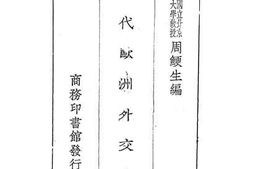 國立北京
大學教授
周鯁生編
代歐洲外交
商務印書館發行